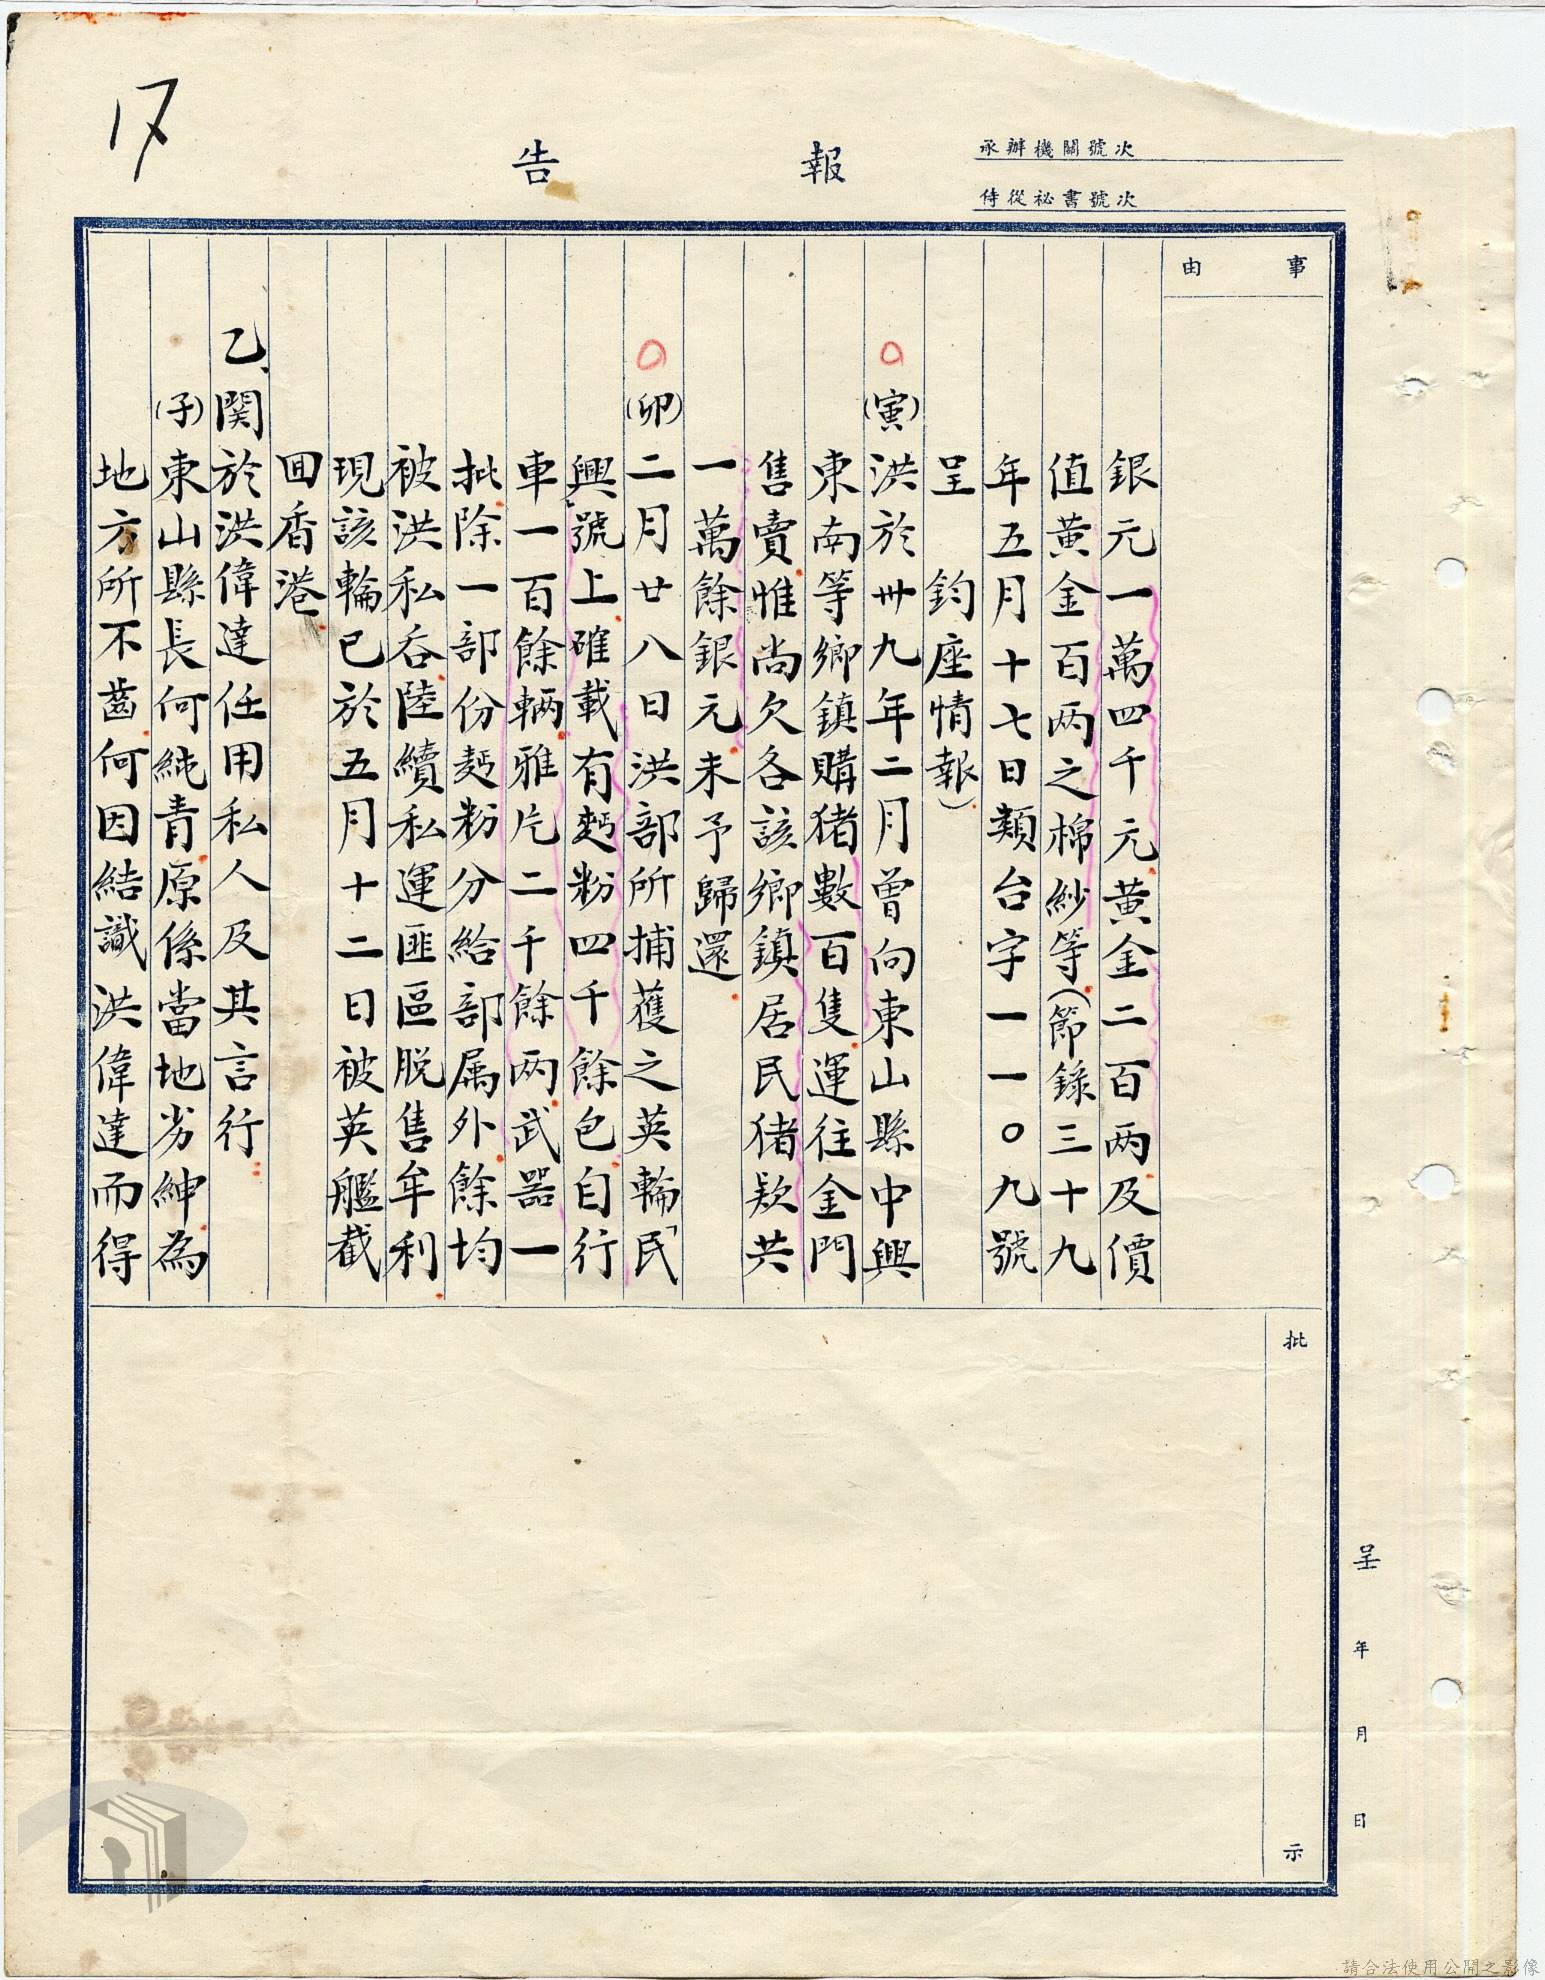 17
報告
承辦機關號次
侍從祕書號次
事由
銀元一萬四千元黃金二百两及價
值黃金百两之棉紗等(節錄三十九
年五月十七日類台字一一〇九號
呈　鈞座情報)
(寅)洪於卅九年二月曾向東山縣中興
東南等鄉鎮購猪數百隻運往金門
售賣惟尚欠各該鄉鎮居民猪款共
一萬餘銀元未予歸還
(卯)二月廿八日洪部所捕獲之英輪「民
興」號上確載有麫粉四千餘包自行
車一百餘輌雅片二千餘两武器一
批除一部份麫粉分給部属外餘均
被洪私吞陸續私運匪區脱售牟利
現該輪已於五月十二日被英艦截
囬香港
乙、関於洪偉達任用私人及其言行
(子)東山縣長何純青原係當地劣紳為
地方所不齒何因結識洪偉達而得
批示
呈　年　月　日
請合法使用公開之影像